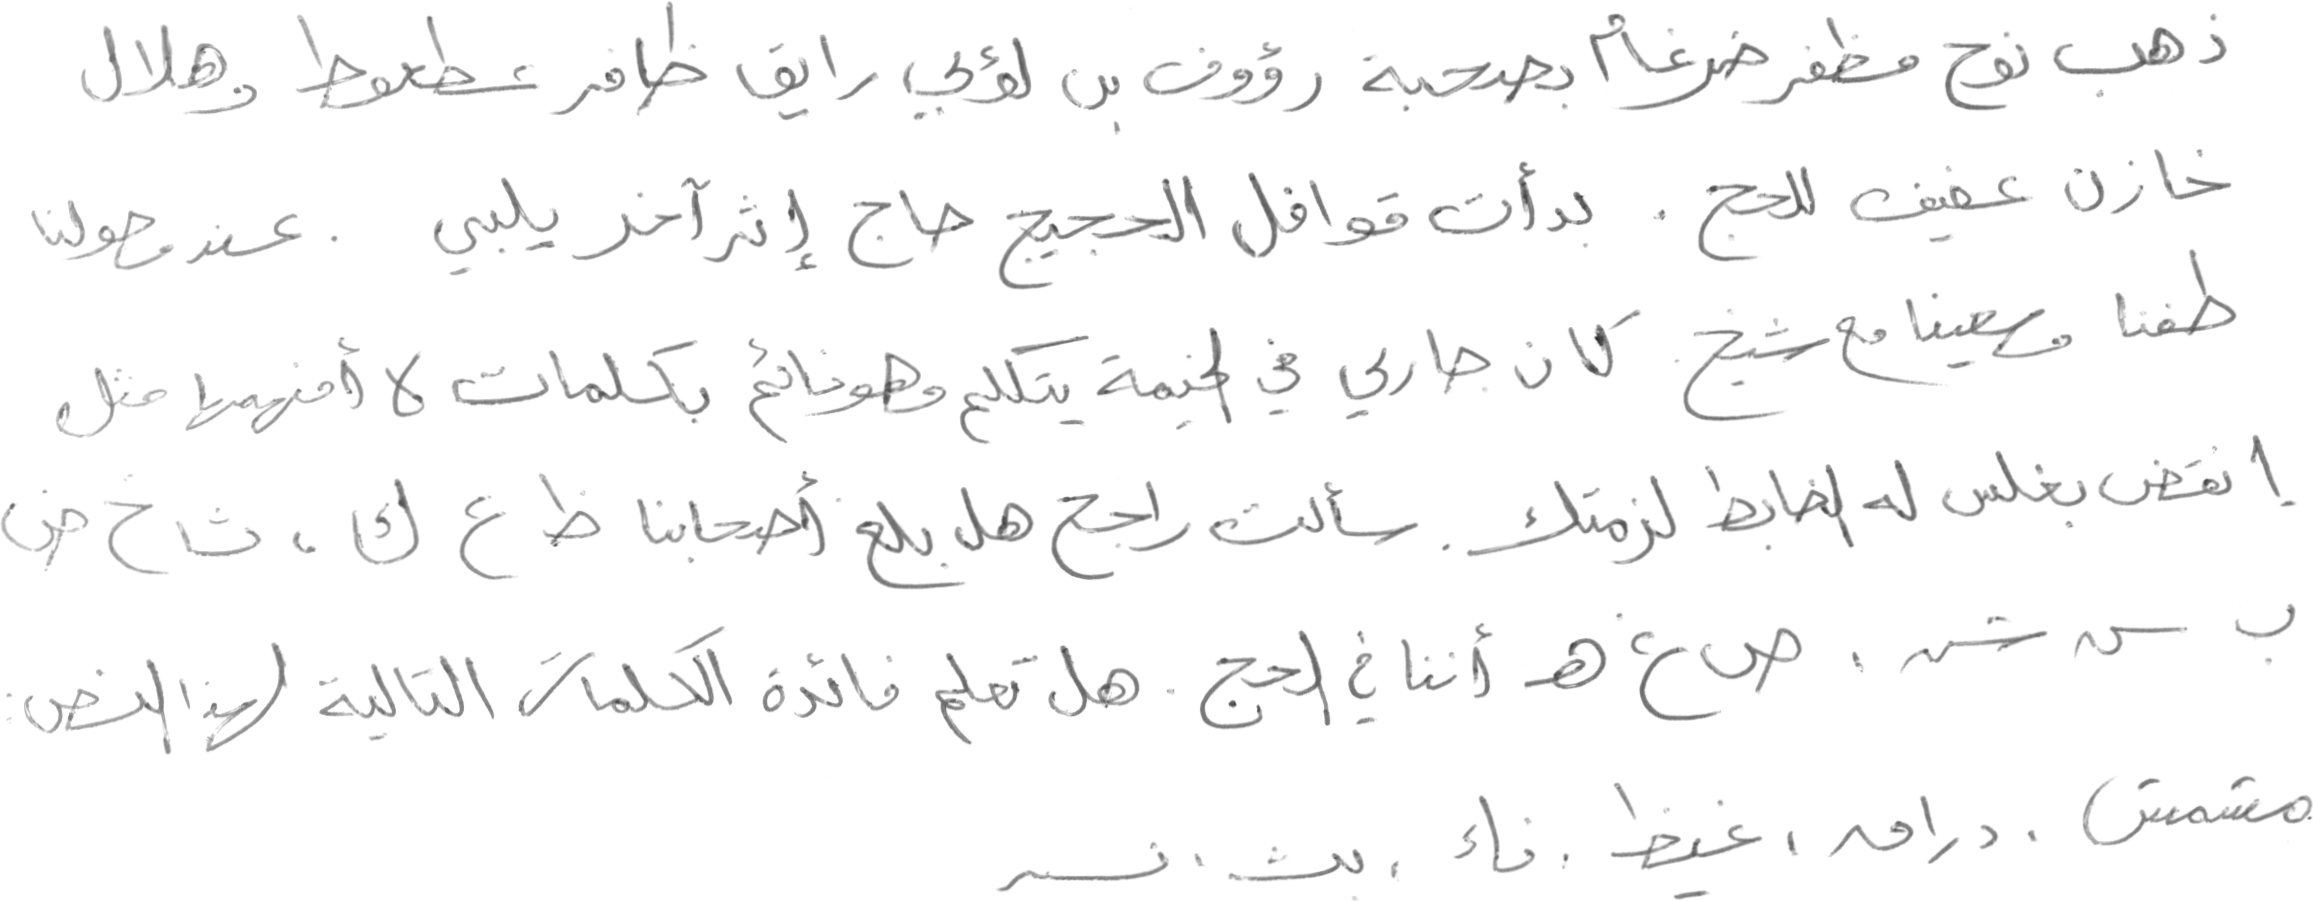 ذهب نوح مظفر ضرغام بصحبة رؤوف بن لؤي، رايق ظافر عطعوط وهلال
خازن عفيف للحج . بدأت قوافل الحجيج حاج إثر آخر يلبي . عند وصولنا
طفنا وسعينا مع شيخ . كان جاري في الخيمة يتكلم وهو نائم بكلمات لا أفهمها مثل
إنقض بغلس له الضابط لزمتك . سألت راجح هل بلع أصحابنا ظ ع ك ، ث خ ض
ب س ش ، ص غ هـ أننا في الحج . هل تعلم فائدة الكلمات التالية لهذا النص :
مشمش ، دراق ، غيظ ، ناء ، بث ، نس